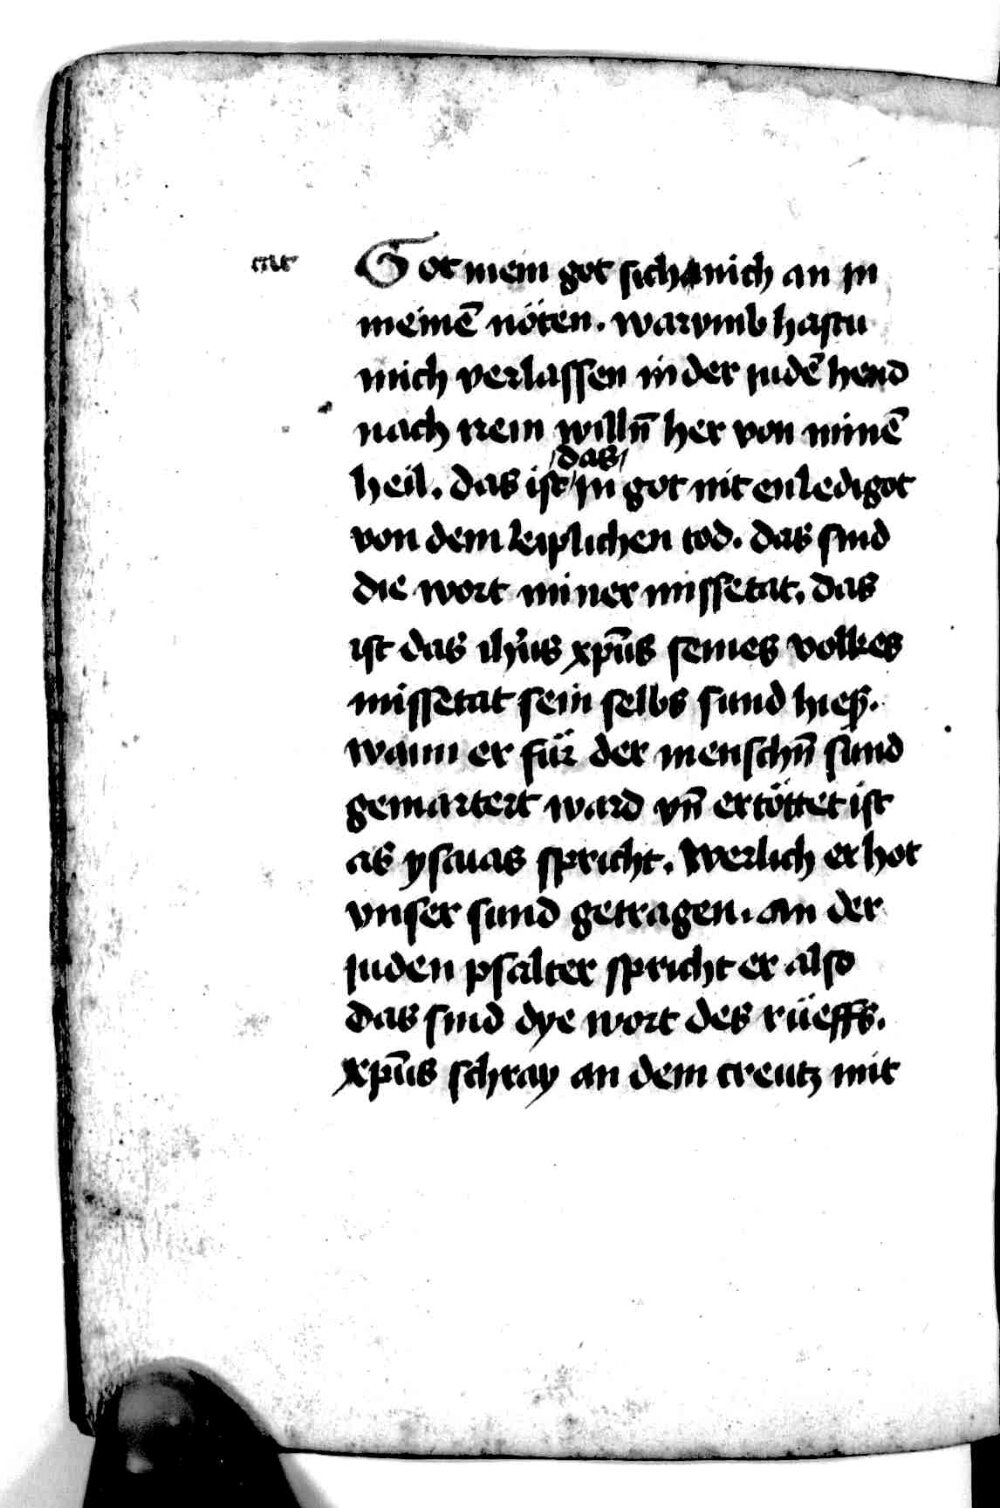 Got mein got sich mich an jn
meinē nöten. warvmb hastu
mich verlassen in der judē hend
nach irem willn̄ her von minē
heil. das ist das jn got nit enledigot
von dem leiplichen tod. das sind
die wort miner missetat. das
ist das ihus xp̄us seines volkes
missetat sein selbs sund hieß.
wann er für der menschn̄ sund
gemartert ward vn̄ ertöttet ist
as ysaias spricht. Werlich er hot
vnser sund getragen. an der
juden psalter spricht er also
das sind dye wort des rüeffs.
xp̄us schray an dem creutz mit